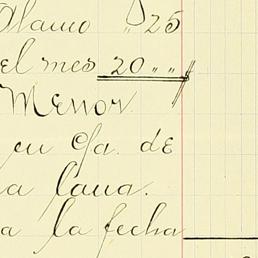 Alamo " 25
el mes 20 " "
Menor
en Ca. de
a Cana.
a la fecha